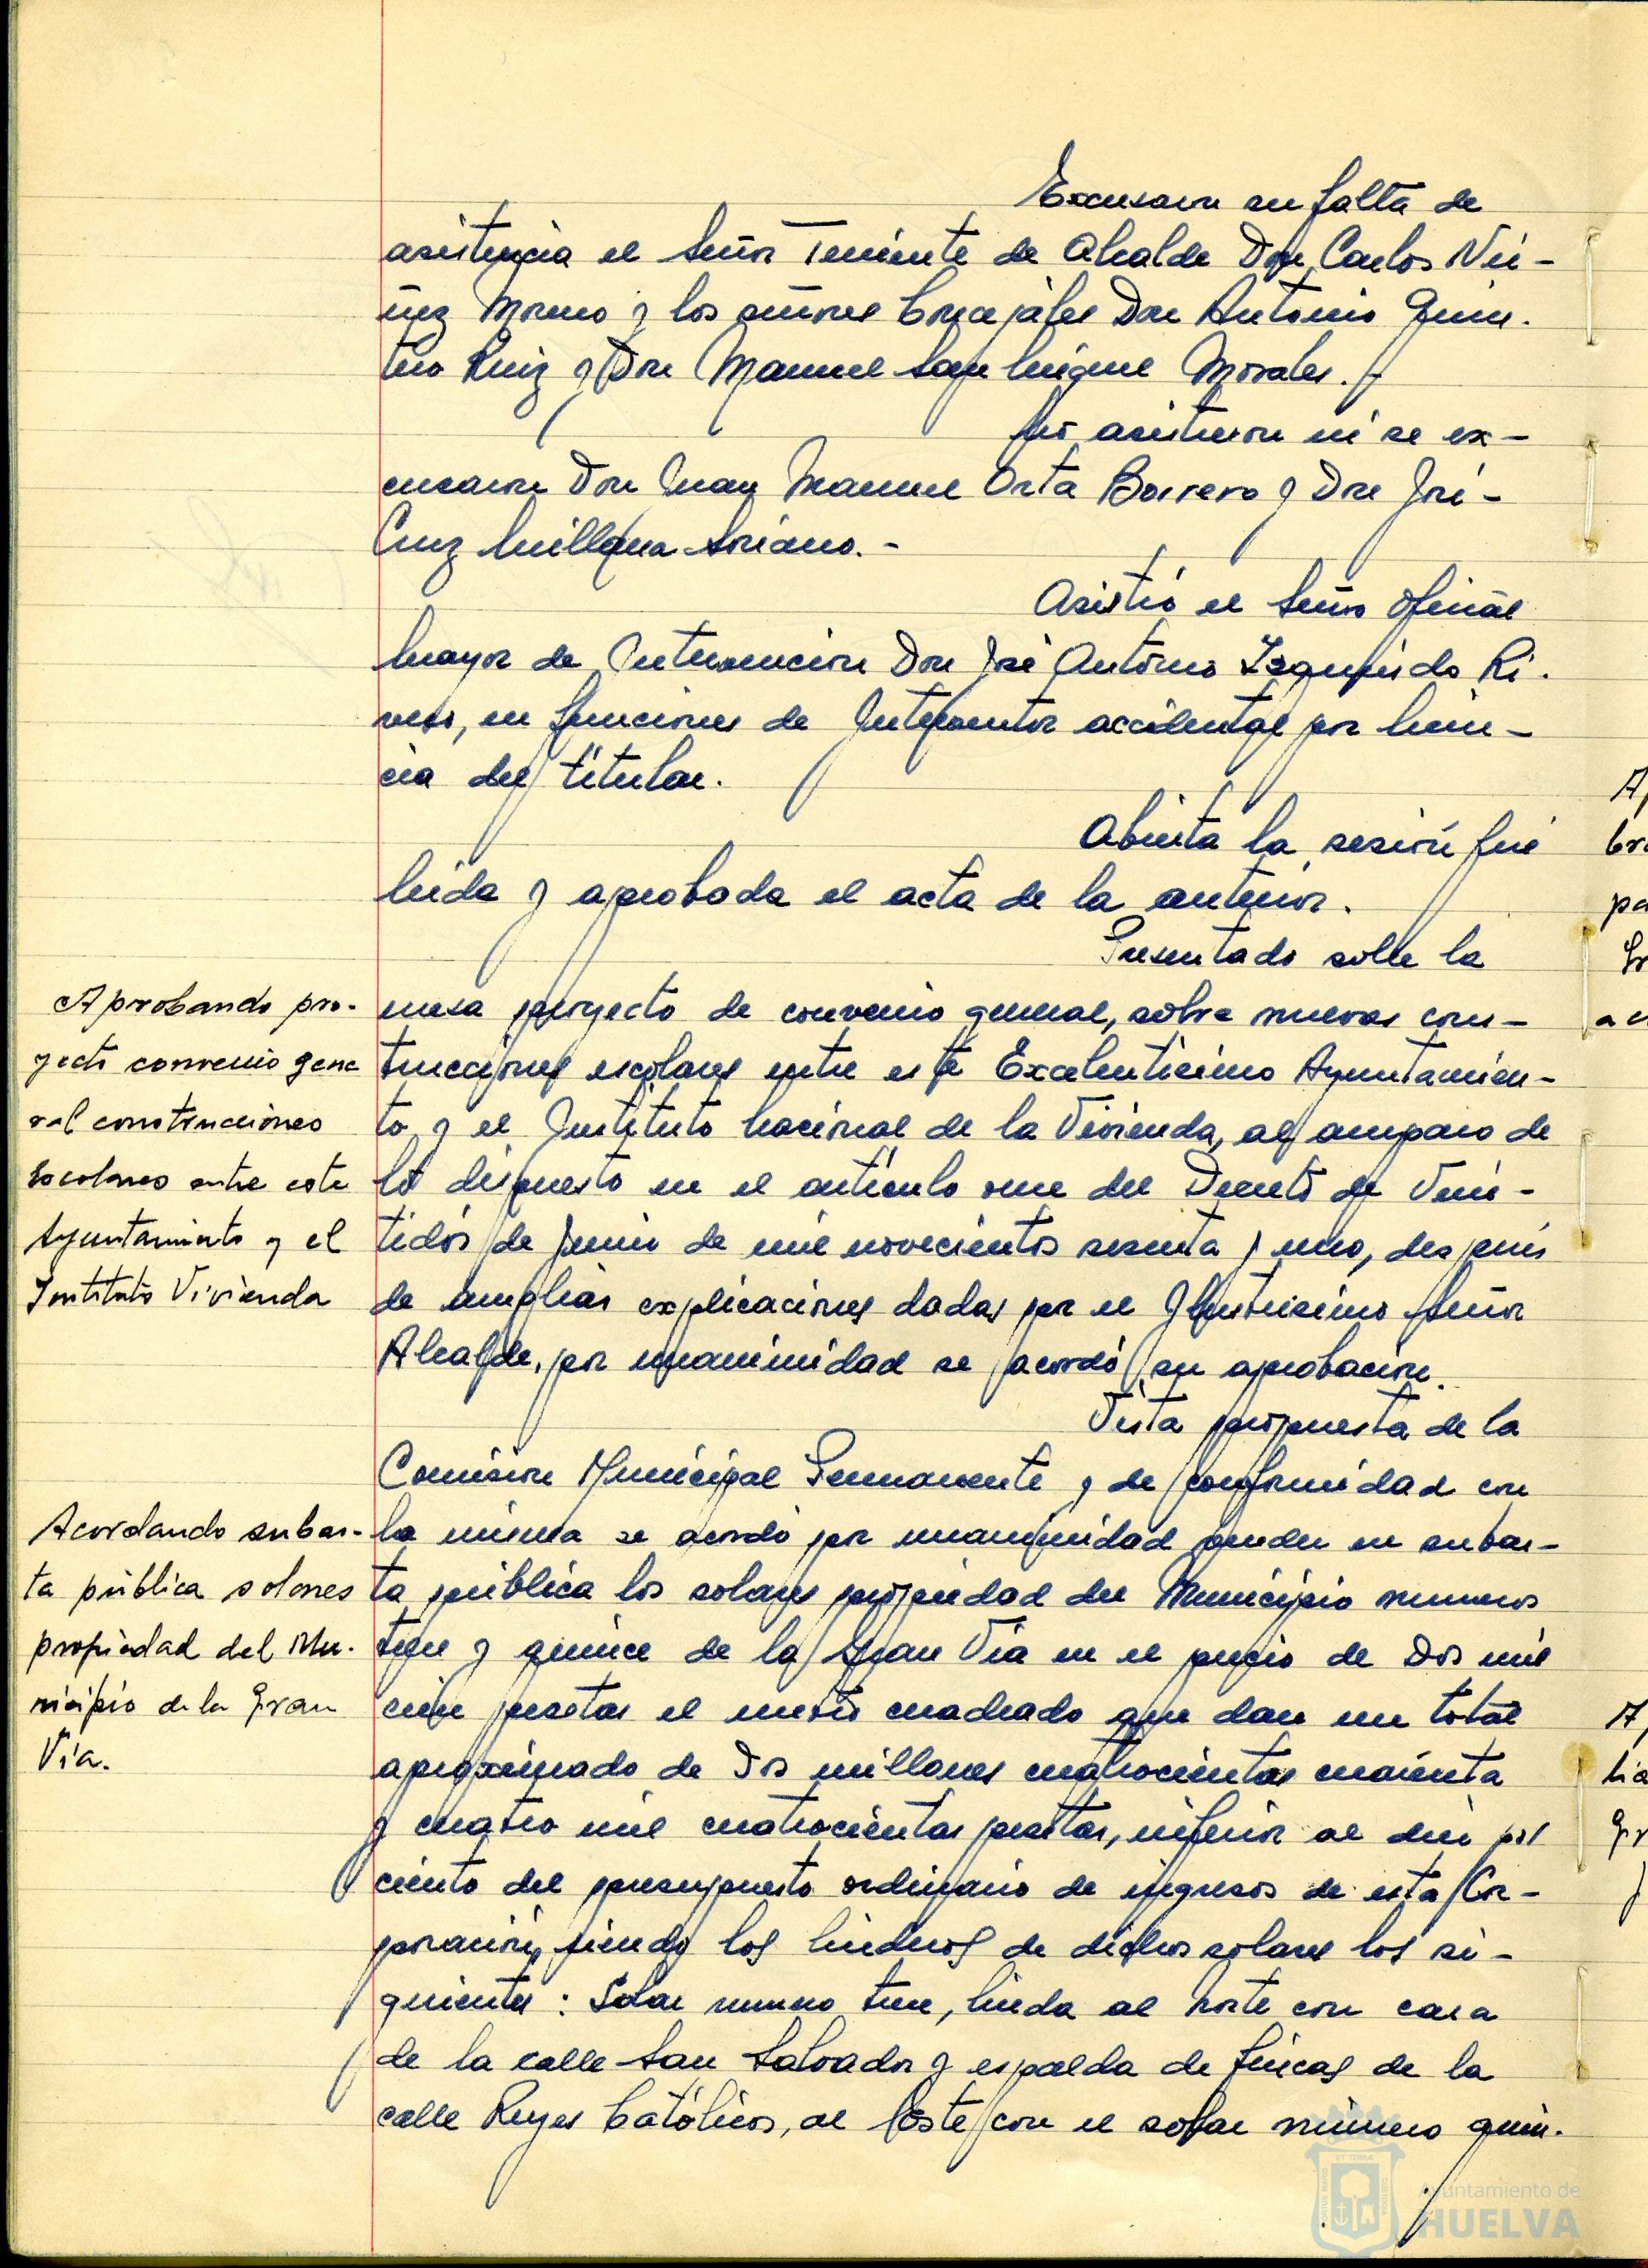 Excusaron su falta de
asistencia el Señor Teniente de Alcalde Don Carlos Nú-
ñez Moreno y los señores Concejales Don Antonio Quin-
tero Ruiz y Don Manuel San Miguel Morales.-
No asistieron ni se ex-
cusaron Don Juan Manuel Orta Borrero y Don José
Cruz Millana Soriano.-
Asistió el Señor Oficial
Mayor de Intervención Don José Antonio Izquierdo Ri-
vero, en funciones de Interventor accidental por licen-
cia del titular.
Abierta la sesión fué
leida y aprobada el acta de la anterior.
Presentado sobre la
mesa proyecto de convenio general, sobre nuevas cons-
trucciones escolares entre este Excelentísimo Ayuntamien-
to y el Instituto Nacional de la Vivienda, al amparo de
lo dispuesto en el artículo once del Decreto de Vein-
tidós de Junio de mil novecientos sesenta y uno, después
de amplias explicaciones dadas por el Ilustrísimo Señor
Alcalde, por unanimidad se acordó su aprobación.
Vista propuesta de la
Comisión Municipal Permanente y de conformidad con
la misma se acordó por unanimidad vender en subas-
ta pública los solares propiedad del Municipio números
trece y quince de la Gran Vía en el precio de Dos mil
cien pesetas el metro cuadrado que dan un total
aproximado de Dos millones cuatrocientas cuarenta
y cuatro mil cuatrocientas pesetas, inferior al diez por
ciento del presupuesto ordinario de ingresos de esta Cor-
poración, siendo los linderos de dichos solares los si-
guientes: Solar numero trece, linda al Norte con casa
de la calle San Salvador y espalda de fincas de la
calle Reyes Católicos, al Este con el solar número quin-
Aprobando pro-
yecto convenio gene
ral construcciones
Escolares entre este
Ayuntamiento y el
Instituto Vivienda
Acordando subas-
ta pública solares
propiedad del Mu-
nicipio de la Gran
Vía.
Ayuntamiento de
HUELVA